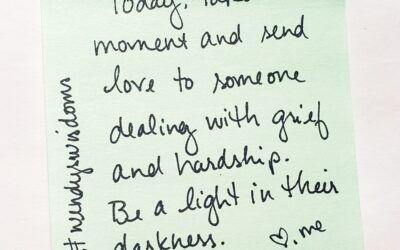 Today, take
moment and send
love to someone
dealing with grief
and hardship.
Be a light in their
darkness. ♡, me
#wendyswisdoms